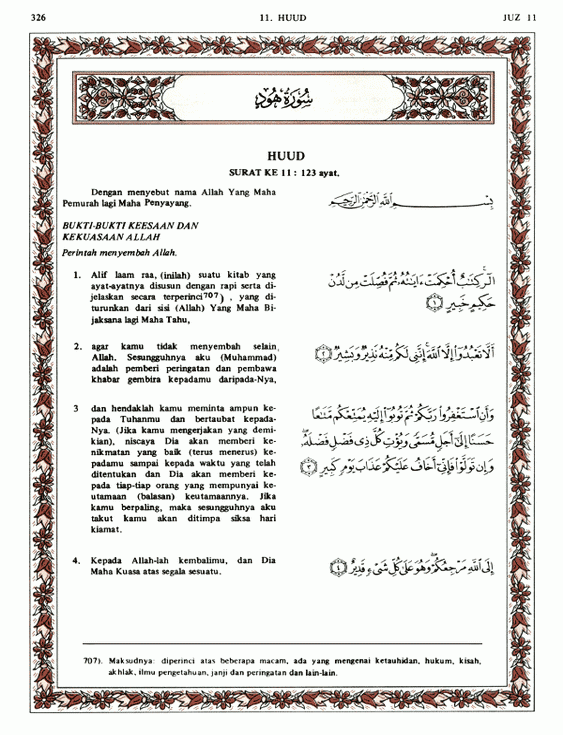 326
11. HUUD
JUZ 11
سُورَةُ هُودٍ
HUUD
SURAT KE 11 : 123 ayat.
Dengan menyebut nama Allah Yang Maha
Pemurah lagi Maha Penyayang.
بِسْمِ اللَّهِ الرَّحْمَٰنِ الرَّحِيمِ
BUKTI-BUKTI KEESAAN DAN
KEKUASAAN ALLAH
Perintah menyembah Allah.
1. Alif laam raa, (inilah) suatu kitab yang
ayat-ayatnya disusun dengan rapi serta di-
jelaskan secara terperinci707) , yang di-
turunkan dari sisi (Allah) Yang Maha Bi-
jaksana lagi Maha Tahu,
الٓر ۚ كِتَٰبٌ أُحْكِمَتْ ءَايَٰتُهُۥ ثُمَّ فُصِّلَتْ مِن لَّدُنْ
حَكِيمٍ خَبِيرٍ ﴿١﴾
2. agar kamu tidak menyembah selain
Allah. Sesungguhnya aku (Muhammad)
adalah pemberi peringatan dan pembawa
khabar gembira kepadamu daripada-Nya,
أَلَّا تَعْبُدُوٓا۟ إِلَّا ٱللَّهَ ۚ إِنَّنِى لَكُم مِّنْهُ نَذِيرٌ وَبَشِيرٌ ﴿٢﴾
3 dan hendaklah kamu meminta ampun ke-
pada Tuhanmu dan bertaubat kepada-
Nya. (Jika kamu mengerjakan yang demi-
kian), niscaya Dia akan memberi ke-
nikmatan yang baik (terus menerus) ke-
padamu sampai kepada waktu yang telah
ditentukan dan Dia akan memberi ke-
pada tiap-tiap orang yang mempunyai ke-
utamaan (balasan) keutamaannya. Jika
kamu berpaling, maka sesungguhnya aku
takut kamu akan ditimpa siksa hari
kiamat.
وَأَنِ ٱسْتَغْفِرُوا۟ رَبَّكُمْ ثُمَّ تُوبُوٓا۟ إِلَيْهِ يُمَتِّعْكُم مَّتَٰعًا
حَسَنًا إِلَىٰٓ أَجَلٍ مُّسَمًّى وَيُؤْتِ كُلَّ ذِى فَضْلٍ فَضْلَهُۥ ۖ
وَإِن تَوَلَّوْا۟ فَإِنِّىٓ أَخَافُ عَلَيْكُمْ عَذَابَ يَوْمٍ كَبِيرٍ ﴿٣﴾
4. Kepada Allah-lah kembalimu, dan Dia
Maha Kuasa atas segala sesuatu.
إِلَى ٱللَّهِ مَرْجِعُكُمْ ۖ وَهُوَ عَلَىٰ كُلِّ شَىْءٍ قَدِيرٌ ﴿٤﴾
707). Maksudnya: diperinci atas beberapa macam, ada yang mengenai ketauhidan, hukum, kisah,
akhlak, ilmu pengetahuan, janji dan peringatan dan lain-lain.